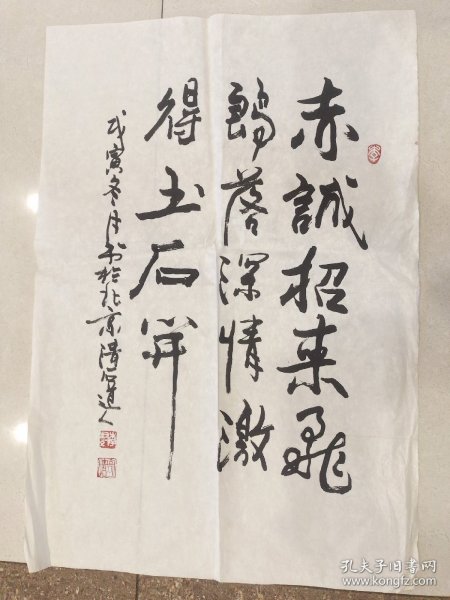 赤誠招來飛
鴻落深情激
得玉石開
戊寅冬月书於北京清石道人
孔夫子旧书网
www.kongfz.com